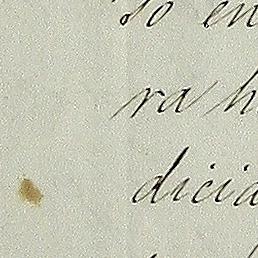 so en
ra h
dicia